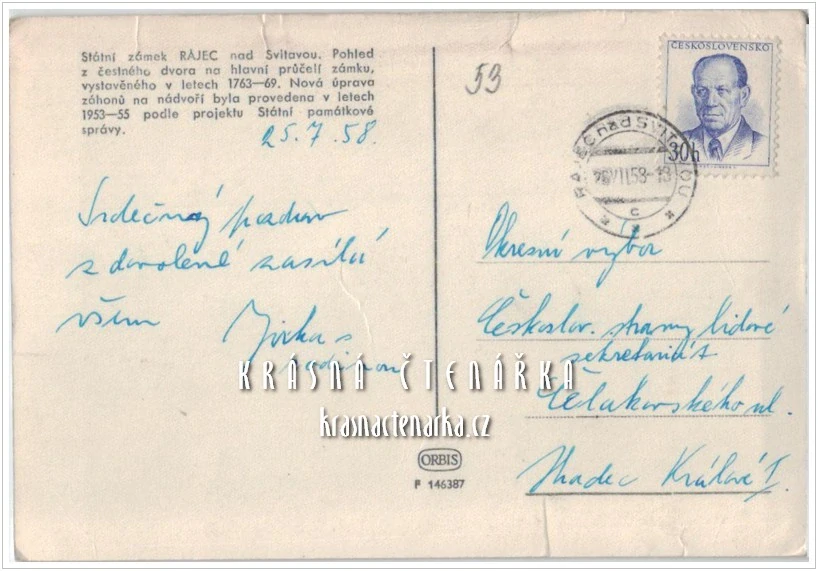 Státní zámek RÁJEC nad Svitavou. Pohled
z čestného dvora na hlavní průčelí zámku,
vystavěného v letech 1763—69. Nová úprava
záhonů na nádvoří byla provedena v letech
1953—55 podle projektu Státní památkové
správy.
25.7.58.
Srdečný pozdrav
z dovolené zasílá
všem
Jirka s
rodinou
53
ČESKOSLOVENSKO
30h
RÁJEC nad SVITAVOU
VII58-13
c
Okresní výbor
Českoslov. strany lidové
sekretariát
Čelakovského ul.
Hradec Králové I
KRÁSNÁ ČTENÁŘKA
krasnactenarka.cz
ORBIS
F 146387